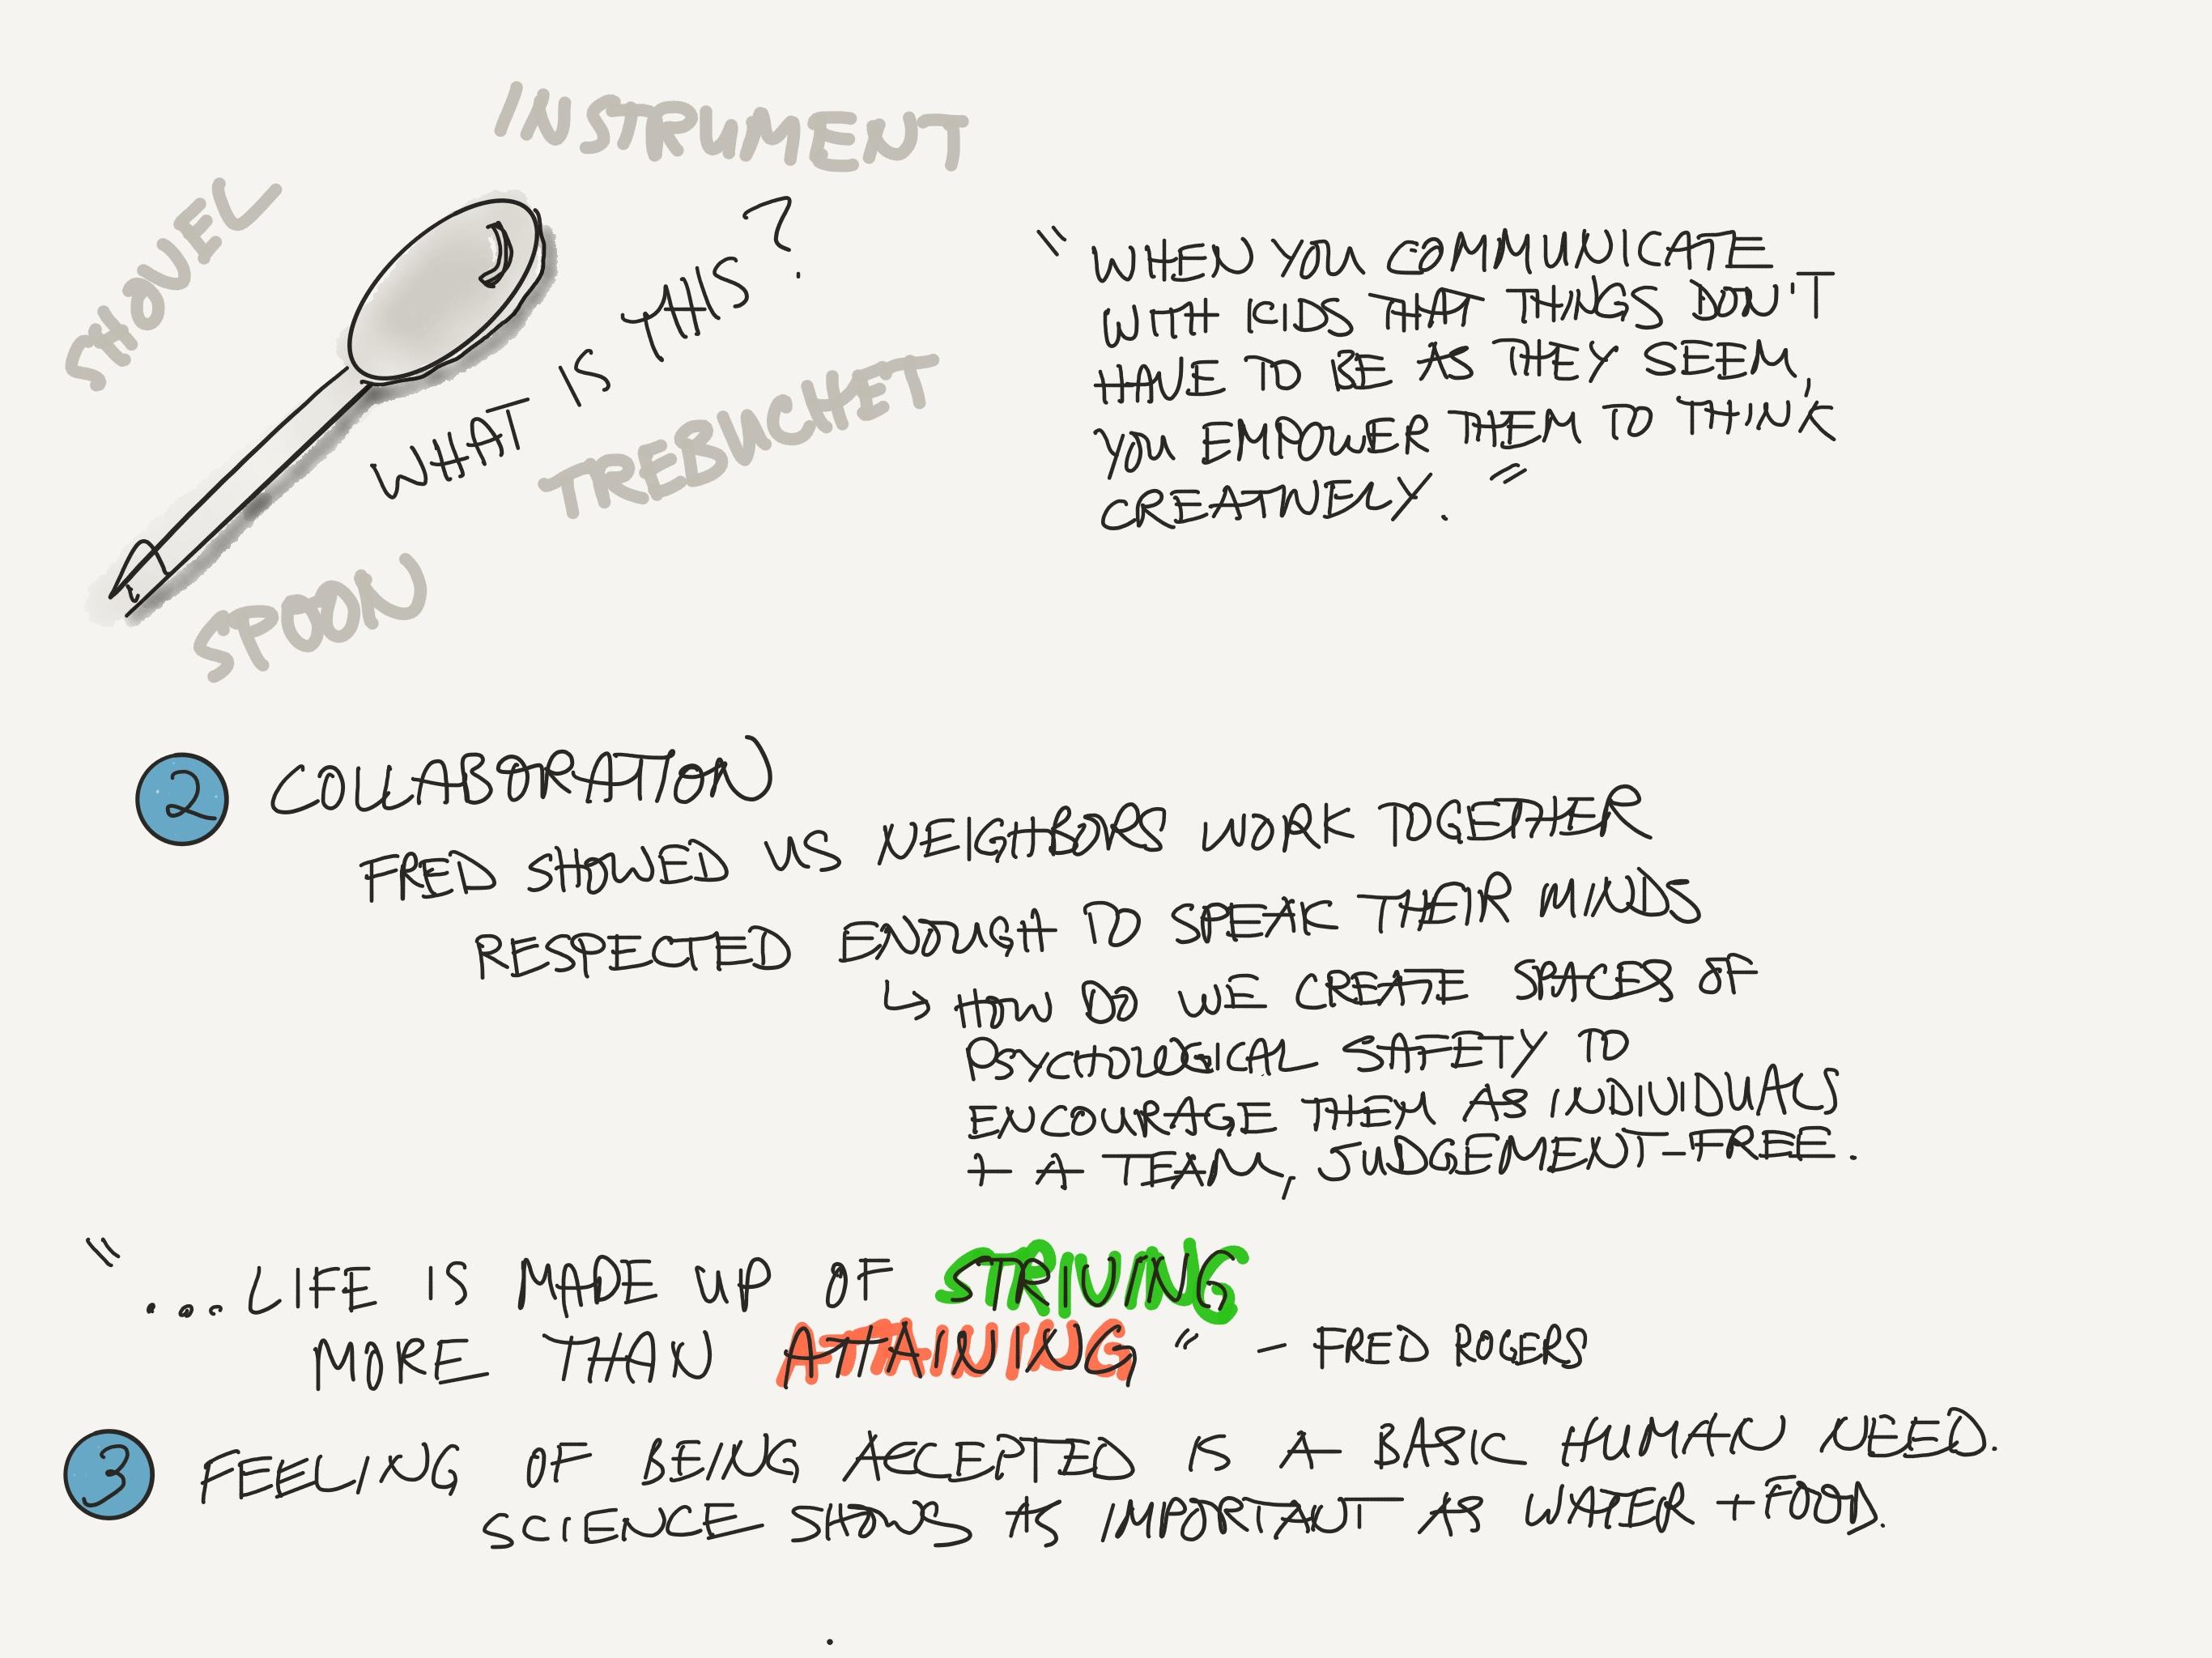 INSTRUMENT
SHOVEL
WHAT IS THIS?
TREBUCHET
SPOON
"WHEN YOU COMMUNICATE
WITH KIDS THAT THINGS DON'T
HAVE TO BE AS THEY SEEM,
YOU EMPOWER THEM TO THINK
CREATIVELY."
2 COLLABORATION
FRED SHOWED US NEIGHBORS WORK TOGETHER
RESPECTED ENOUGH TO SPEAK THEIR MINDS
↳ HOW DO WE CREATE SPACES OF
PSYCHOLOGICAL SAFETY TO
ENCOURAGE THEM AS INDIVIDUALS
+ A TEAM, JUDGEMENT-FREE.
"...LIFE IS MADE UP OF STRIVING
MORE THAN ATTAINING" - FRED ROGERS
3 FEELING OF BEING ACCEPTED IS A BASIC HUMAN NEED.
SCIENCE SHOWS AS IMPORTANT AS WATER + FOOD.